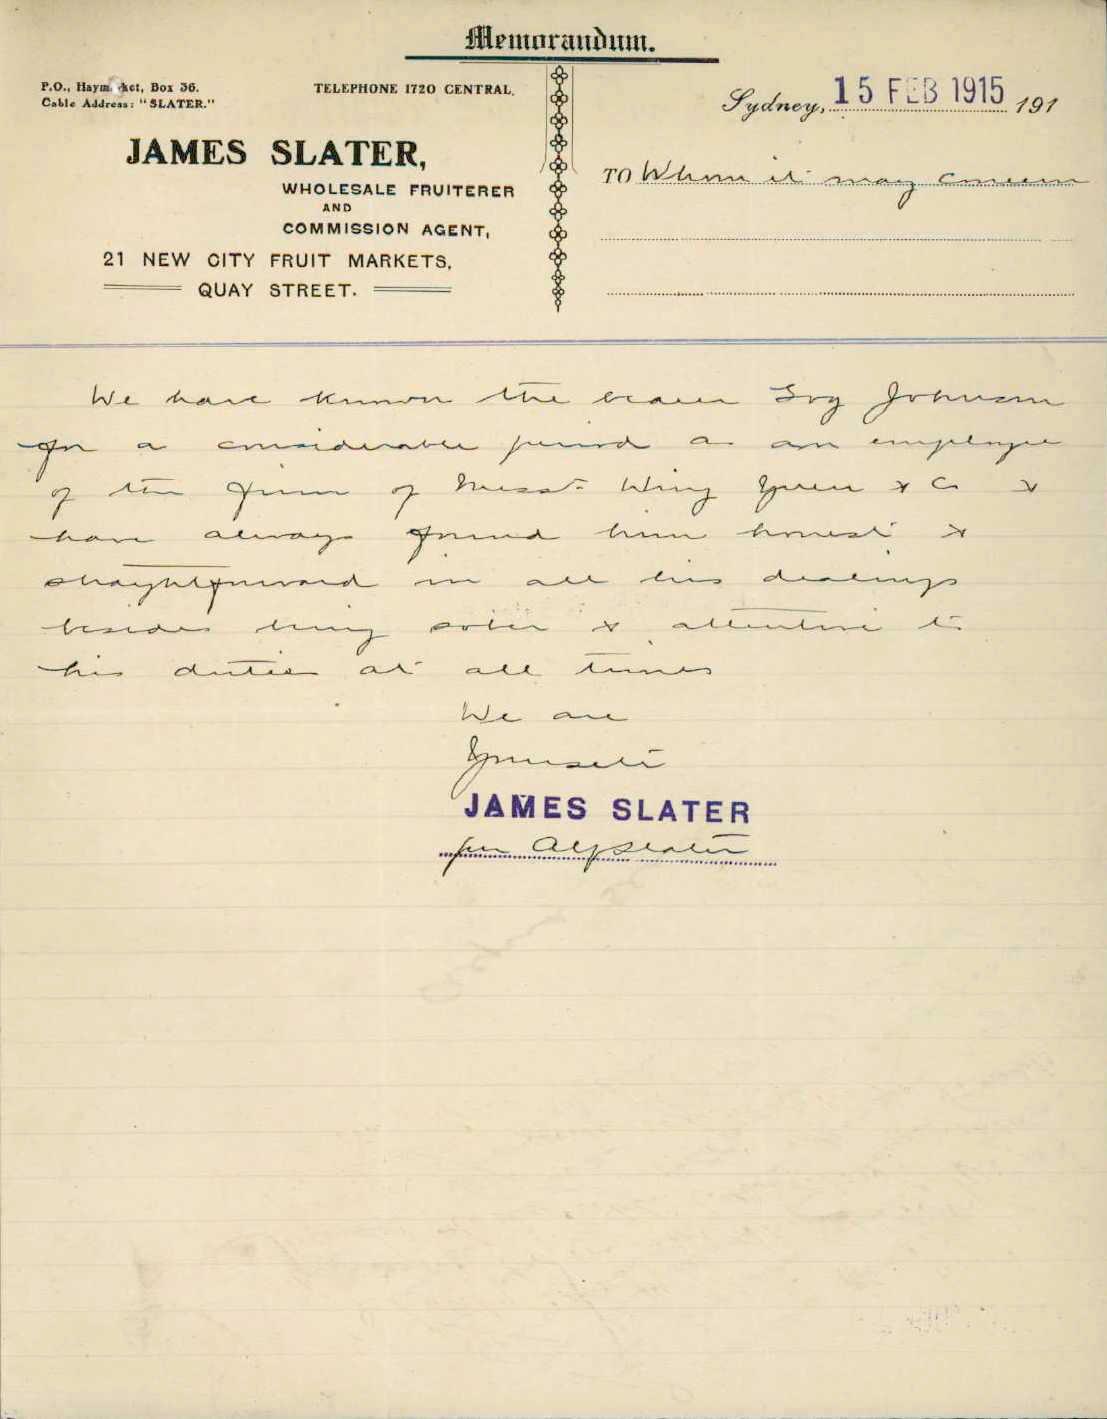 Memorandum.
P.O., Haymarket, Box 36.
Cable Address: "SLATER."
TELEPHONE 1720 CENTRAL.
JAMES SLATER,
WHOLESALE FRUITERER
AND
COMMISSION AGENT,
21 NEW CITY FRUIT MARKETS,
QUAY STREET.
Sydney, 15 FEB 1915 191
TO Whom it may concern
We have known the bearer Johnson
for a considerable period as an employee
of the firm of Messrs Wing & Co &
have always found him honest &
straightforward in all his dealings
besides being sober & attentive to
his duties at all times
We are
Yours etc
JAMES SLATER
per Slater